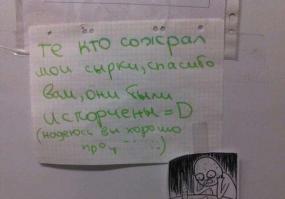 те кто сожрал
мои сырки, спасибо
вам, они были
искорчены =D
(надеюсь вы хорошо